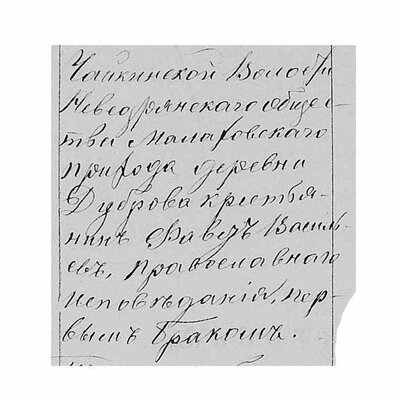 Чайкинской Волости
Неведрянскаго общес-
тва Малаховскаго
прихода деревни
Дуброва крестья-
нинъ Василь-
евъ, православнаго
исповѣданія, пер-
вымъ бракомъ.